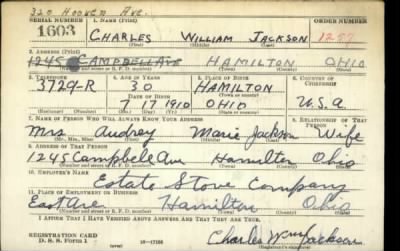 320 Hoover Ave.
SERIAL NUMBER 1. NAME (Print) ORDER NUMBER
1603 CHARLES WILLIAM JACKSON 1287
(First) (Middle) (Last)
2. ADDRESS (Print)
1245 CAMPBELL AVE HAMILTON OHIO
3. TELEPHONE 4. AGE IN YEARS 5. PLACE OF BIRTH 6. COUNTRY OF CITIZENSHIP
3729-R 30 HAMILTON
DATE OF BIRTH (Town or county)
7 17 1910 OHIO U.S.A
(Exchange) (Number) (Mo.) (Day) (Yr.) (State or country)
7. NAME OF PERSON WHO WILL ALWAYS KNOW YOUR ADDRESS 8. RELATIONSHIP OF THAT PERSON
Mrs Audrey Marie Jackson Wife
(Mr., Mrs., Miss) (First) (Middle) (Last)
9. ADDRESS OF THAT PERSON
1245 Campbell Ave Hamilton Ohio
(Number and street or R. F. D. number) (Town) (County) (State)
10. EMPLOYER'S NAME
Estate Stove Company
11. PLACE OF EMPLOYMENT OR BUSINESS
East Ave Hamilton Ohio
(Number and street or R. F. D. number) (Town) (County) (State)
I AFFIRM THAT I HAVE VERIFIED ABOVE ANSWERS AND THAT THEY ARE TRUE.
REGISTRATION CARD
D. S. S. Form 1 16-17105 Charles Wm Jackson
(over)